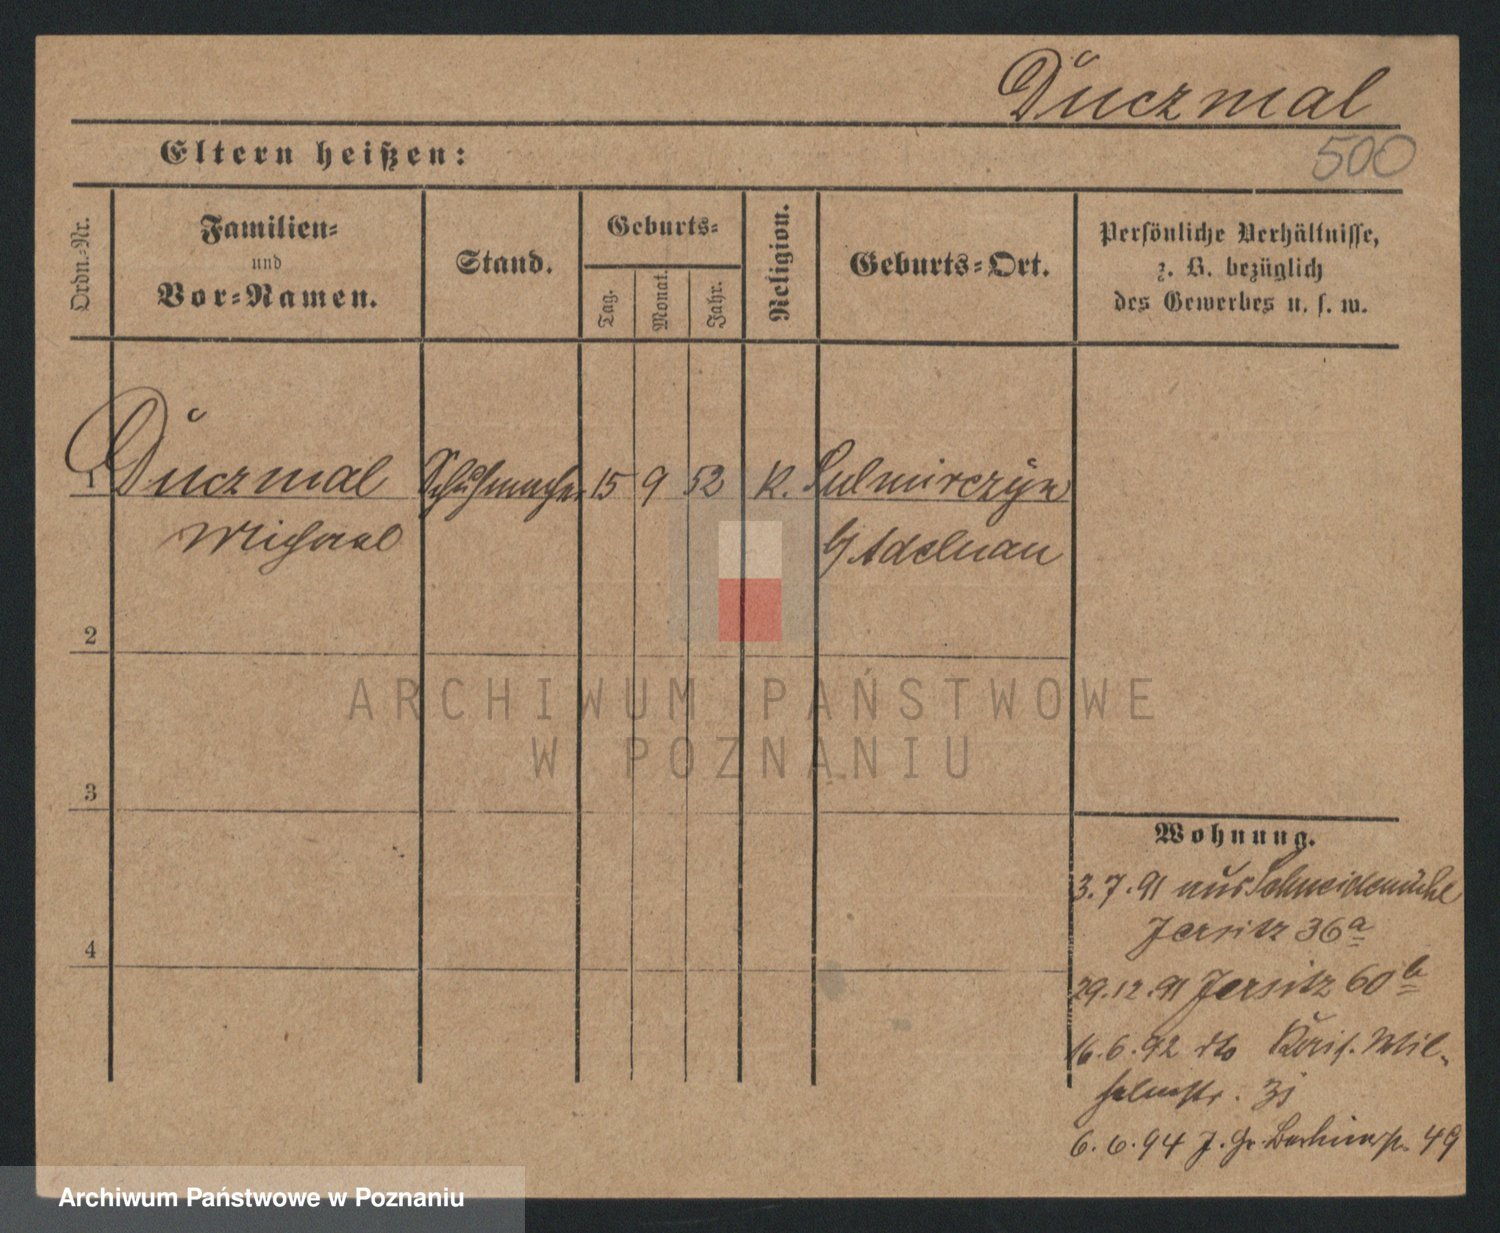 Duczmal
500
Eltern heißen:
Ordn.-Nr.
Familien-
und
Vor-Namen.
Stand.
Geburts-
Tag.
Monat.
Jahr.
Religion.
Geburts-Ort.
Persönliche Verhältnisse,
z. B. bezüglich
des Gewerbes u. s. w.
1
Duczmal
Schuhmacher
15
9
52
K.
Sulmirczyn
Michael
Adelnau
2
3
4
ARCHIWUM PAŃSTWOWE
W POZNANIU
Wohnung.
3.7.91 aus Schneidemühl
Jersitz 36a
29.12.91 Jersitz 60b
16.6.92 dto Kais. Wil-
helmstr. 31
6.6.94 J. Gr. Berlinerstr. 49
Archiwum Państwowe w Poznaniu